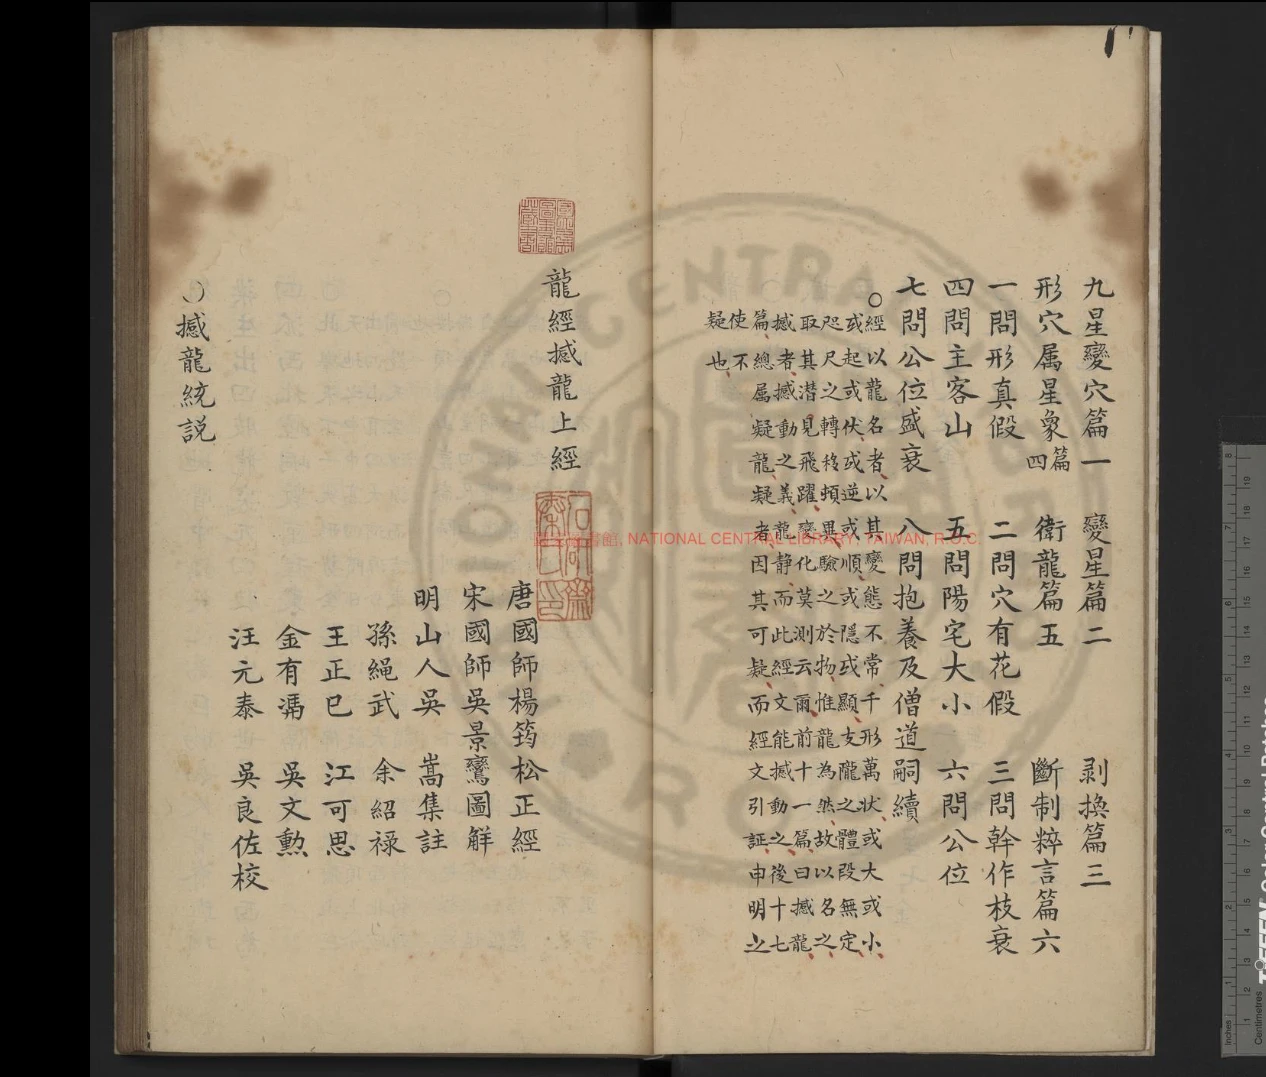 九星變穴篇一 變星篇二 剥換篇三
形穴属星象四篇 衛龍篇五 斷制粹言篇六
一問形真假 二問穴有花假 三問幹作枝衰
四問主客山 五問陽宅大小 六問公位
七問公位盛衰 八問抱養及僧道嗣續
○經以龍名者以其變態不常千形萬状或大或小
或起或伏或逆或順或隱或顯支隴之體段無定
咫尺之轉移頻異驗之於物惟龍為然故以名之
取其潜見飛躍變化莫測云爾前十一篇曰撼龍
撼者撼動之義龍静而此經文能撼動之後十七
篇總属疑龍疑者因其可疑而經文引証申明之
使不
疑也
龍經撼龍上經
唐國師楊筠松正經
宋國師吳景鸞圖解
明山人吳 嵩集註
孫繩武 余紹禄
王正巳 江可思
金有潹 吳文勲
汪元泰 吳良佐校
○撼龍統説
NATIONAL CENTRAL LIBRARY, TAIWAN, R.O.C.